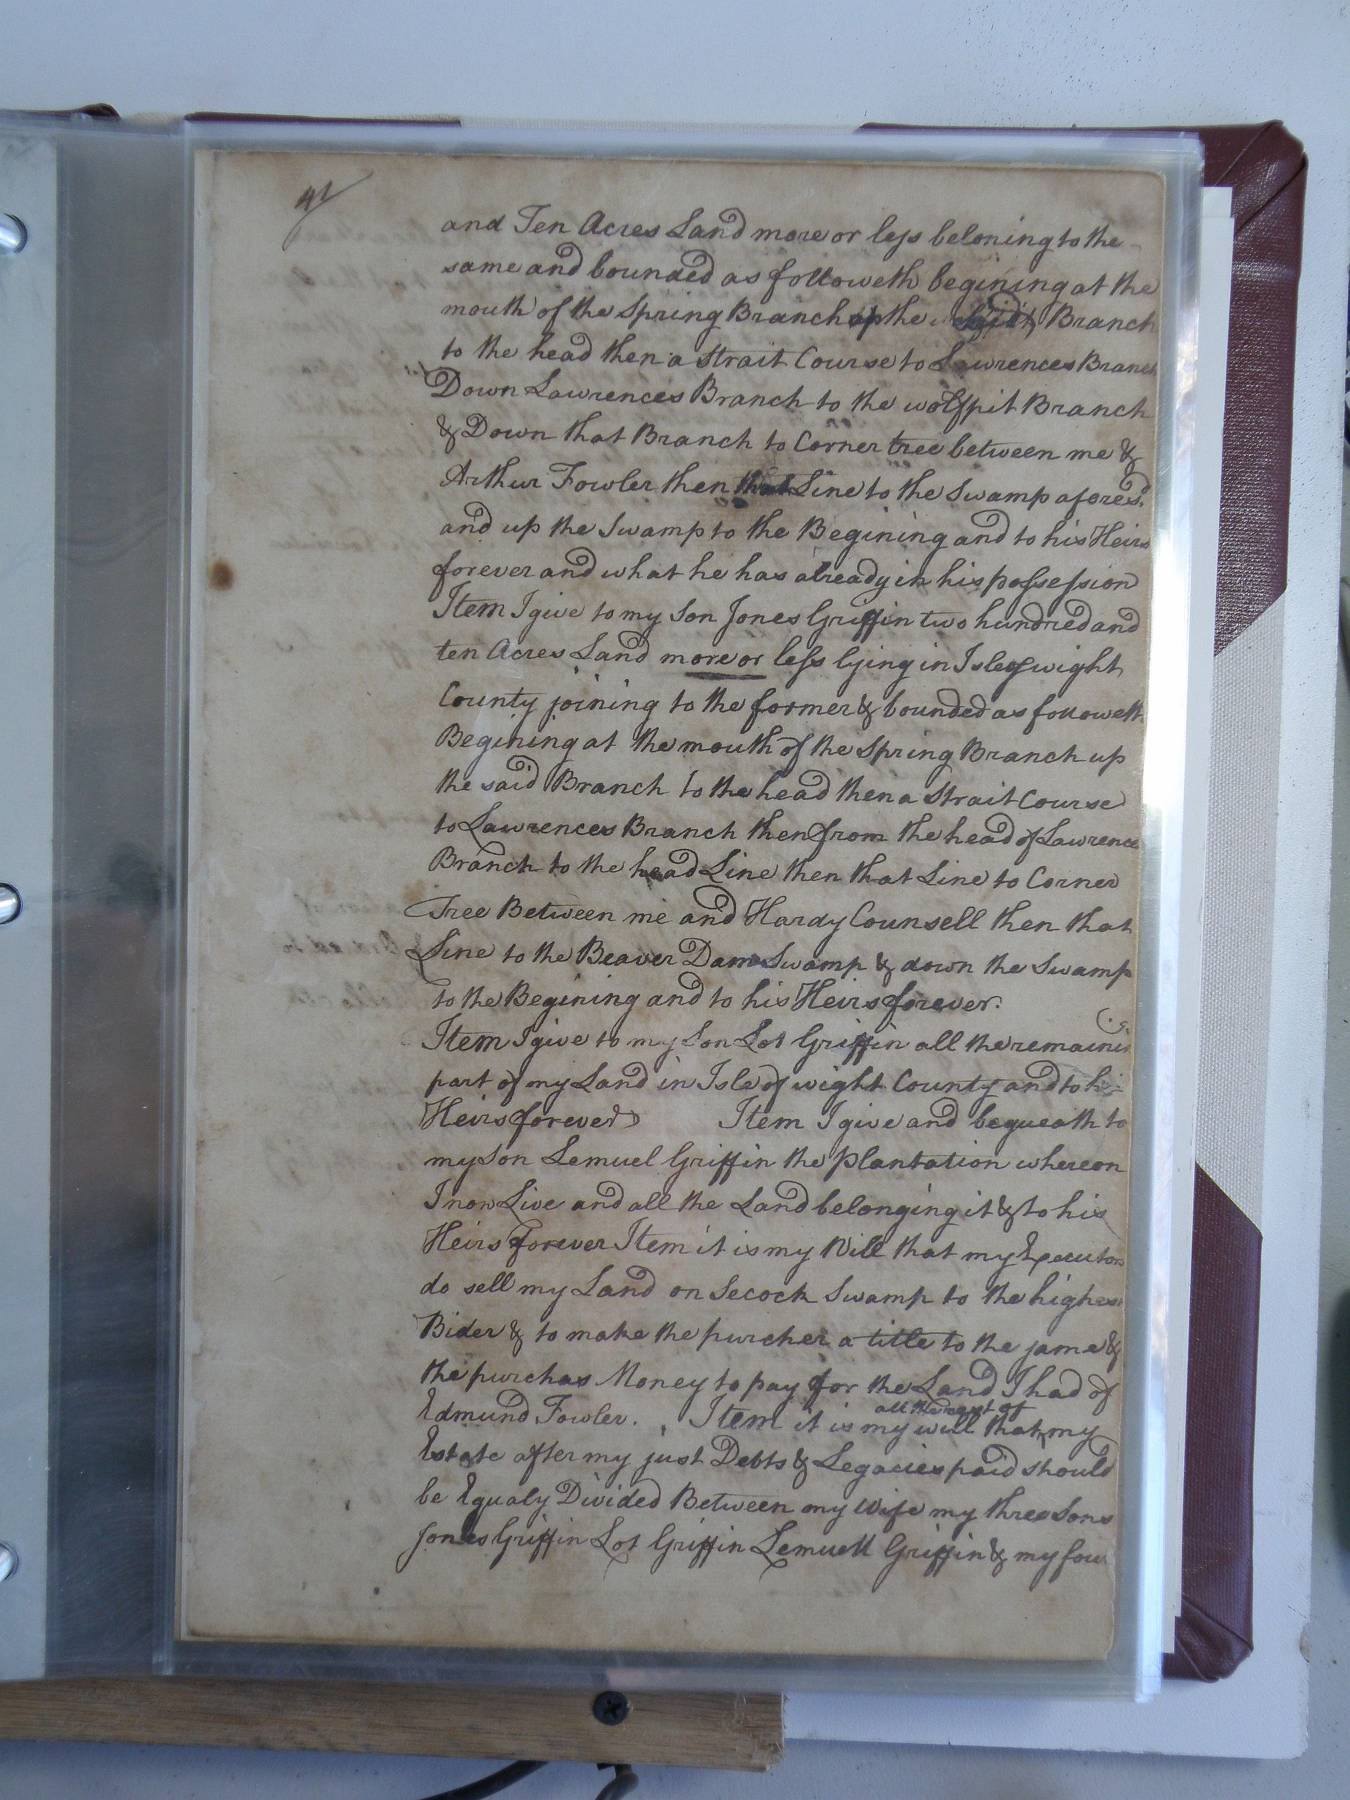 and Ten Acres Land more or less beloning to the
same and bounded as followeth begining at the
mouth of the Spring Branch up the said Branch
to the head then a Strait Course to Lawrences Branch
Down Lawrences Branch to the wolfpit Branch
& Down that Branch to Corner tree between me &
Arthur Fowler then that Line to the Swamp afores.d
and up the Swamp to the Begining and to his Heirs
forever and what he has already in his possession
Item I give to my Son Jones Griffin two hundred and
ten Acres Land more or less lying in Isle of wight
County joining to the former & bounded as followeth
Begining at the mouth of the Spring Branch up
the said Branch to the head then a Strait Course
to Lawrences Branch then from the head of Lawrence
Branch to the head Line then that Line to Corner
Tree Between me and Hardy Counsell then that
Line to the Beaver Dam Swamp & down the Swamp
to the Begining and to his Heirs forever.
Item I give to my Son Lot Griffin all the remaining
part of my Land in Isle of wight County and to his
Heirs forever Item I give and bequeath to
my Son Lemuel Griffin the plantation whereon
I now Live and all the Land belonging it & to his
Heirs forever Item it is my Will that my Executors
do sell my Land on Secock Swamp to the highest
Bider & to make the purcher a title to the same &
the purchas Money to pay for the Land I had of
Edmund Fowler. Item it is my will that all the rest of my
Estate after my just Debts & Legacies paid should
be Equaly Divided Between my Wife my three Sons
Jones Griffin Lot Griffin Lemuell Griffin & my four